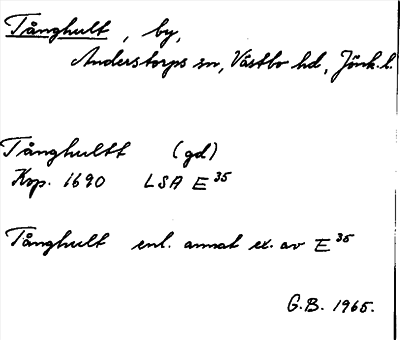 Tånghult, by,
Anderstorps sn, Västbo hd, Jönk. l.
Tånghultt (gd)
Krp. 1690 LSA E 35
Tånghult enl. annat ex. av E 35
G.B. 1965.